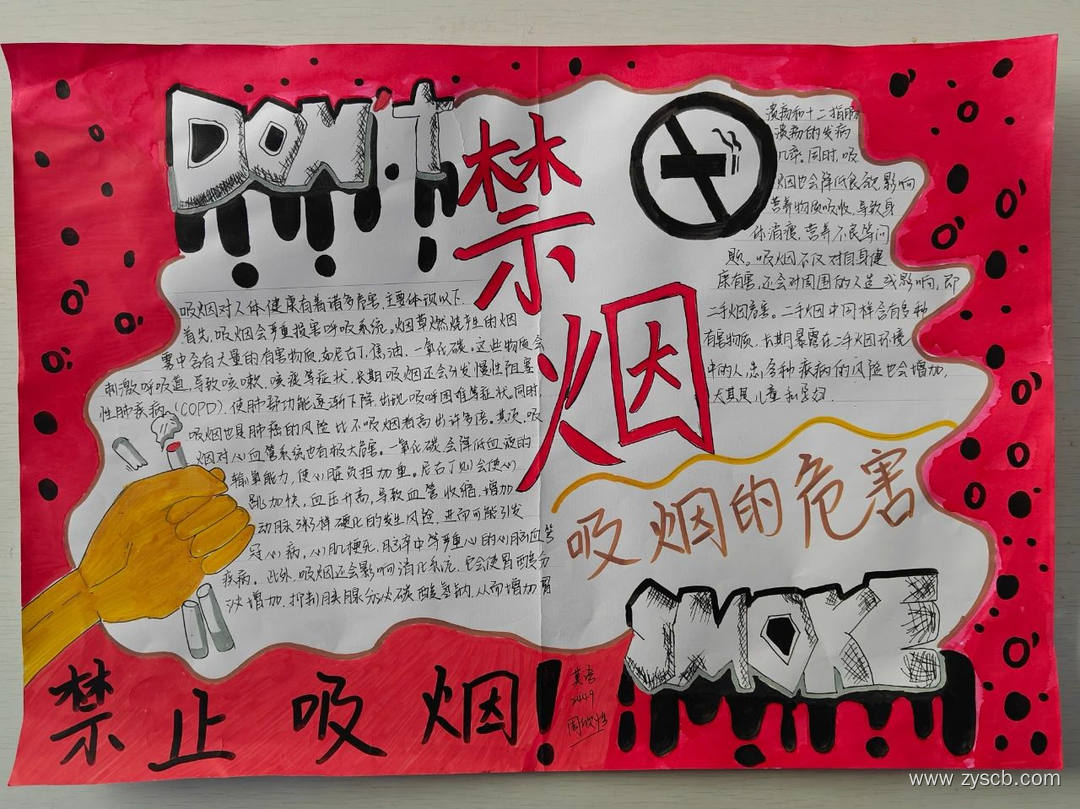 DON'T
禁烟
吸烟对人体健康有着诸多危害,主要体现以下.
首先,吸烟会严重损害呼吸系统。烟草燃烧产生的烟
雾中含有大量的有害物质,如尼古丁,焦油,一氧化碳。这些物质会
刺激呼吸道,导致咳嗽、咳痰等症状,长期吸烟还会引发慢性阻塞
性肺疾病,(COPD),使肺部功能逐渐下降出现呼吸困难等症状,同时,
吸烟也是肺癌的风险比不吸烟者高出许多倍。其次,吸
烟对心血管系统也有极大危害。一氧化碳会降低血液的
输氧能力,使心脏负担加重。尼古丁则会使心
跳加快,血压升高,导致血管收缩,增加
动脉粥样硬化的发生风险,进而可能引发
冠心病,心肌梗死,脑卒中等严重心的心脑血管
疾病。此外,吸烟还会影响消化系统,它会使胃酸分
泌增加,抑制胰腺分泌碳酸氢钠,从而增加胃
溃疡和十二指肠
溃疡的发病
几率。同时,吸
烟也会降低食欲,影响
营养物质吸收,导致身
体消瘦,营养不良等问
题。吸烟不仅对自身健
康有害,还会对周围的人造成影响,即
二手烟危害。二手烟中同样含有多种
有害物质,长期暴露在二手烟环境
中的人,患各种疾病的风险也会增加,
尤其是儿童和孕妇.
吸烟的危害
SMOKE
禁止吸烟!
2449
www.zyscb.com